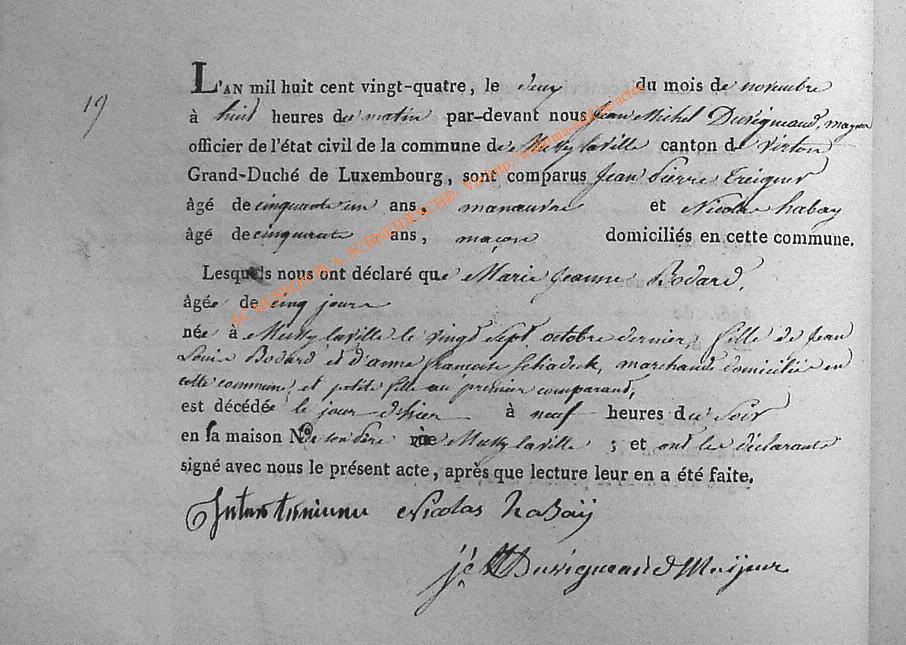 19
L'AN mil huit cent vingt-quatre, le deux du mois de novembre
à huit heures du matin par-devant nous Jean Michel Duvigneaud, mayeur
officier de l'état civil de la commune de Mussy laville canton de Virton
Grand-Duché de Luxembourg, sont comparus Jean Pierre
âgé de cinquante un ans, manœuvre et Nicolas habay
âgé de cinquante ans, maçon domiciliés en cette commune.
Lesquels nous ont déclaré que Marie Jeanne Rodard,
âgée de cinq jours
née à Mussy laville le vingt sept octobre dernier, fille de Jean
Louis Rodard et d'anne françoise marchands domiciliés en
cette commune, et petite fille au premier comparant,
est décédée le jour d'hier à neuf heures du soir
en sa maison N° de son père rue Mussy laville ; et ont les déclarants
signé avec nous le présent acte, après que lecture leur en a été faite.
Nicolas habaÿ
Duvigneaud Maÿeur